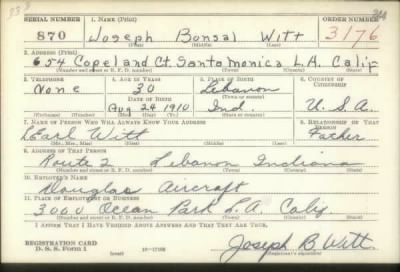 SERIAL NUMBER 1. NAME (Print) ORDER NUMBER
870 Joseph Bonsal Witt 3176
(First) (Middle) (Last)
2. ADDRESS (Print)
654 Copeland Ct. Santa Monica L.A. Calif
(Number and street or R. F. D. number) (Town) (County) (State)
3. TELEPHONE 4. AGE IN YEARS 5. PLACE OF BIRTH 6. COUNTRY OF CITIZENSHIP
None 30 Lebanon
DATE OF BIRTH (Town or county)
Aug 24 1910 Ind. U.S.A.
(Exchange) (No.) (Mo.) (Day) (Yr.) (State or country)
7. NAME OF PERSON WHO WILL ALWAYS KNOW YOUR ADDRESS 8. RELATIONSHIP OF THAT PERSON
Earl Witt Father
(Mr., Mrs., Miss) (First) (Middle) (Last)
9. ADDRESS OF THAT PERSON
Route 2 Lebanon Indiana
(Number and street or R. F. D. number) (Town) (County) (State)
10. EMPLOYER'S NAME
Douglas Aircraft
11. PLACE OF EMPLOYMENT OR BUSINESS
3000 Ocean Park L.A. Calif.
(Number and street or R. F. D. number) (Town) (County) (State)
I AFFIRM THAT I HAVE VERIFIED ABOVE ANSWERS AND THAT THEY ARE TRUE.
REGISTRATION CARD
D. S. S. Form 1 (over) Joseph B. Witt
(Registrant's signature)